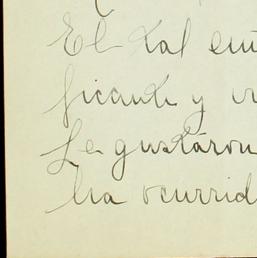 El tal em
ficante y
Le gustáron
ha ocurrid